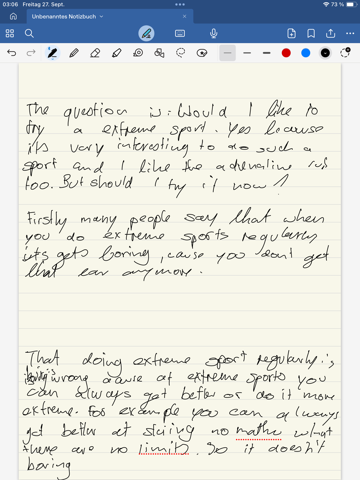 03:06 Freitag 27. Sept.
73 %
Unbenanntes Notizbuch
The question is: Would I like to
try a extreme sport. Yes because
it's very interesting to do such a
sport and I like the adrenaline rush
too. But should I try it now?
Firstly many people say that when
you do extreme sports regularly
its gets boring, cause you don't get
that anymore.
That doing extreme sport regularly is
boring is wrong cause at extreme sports you
can always get better or do it more
extreme. For example you can always
get better at skiing no what
there are no limits. So it doesn't
boring